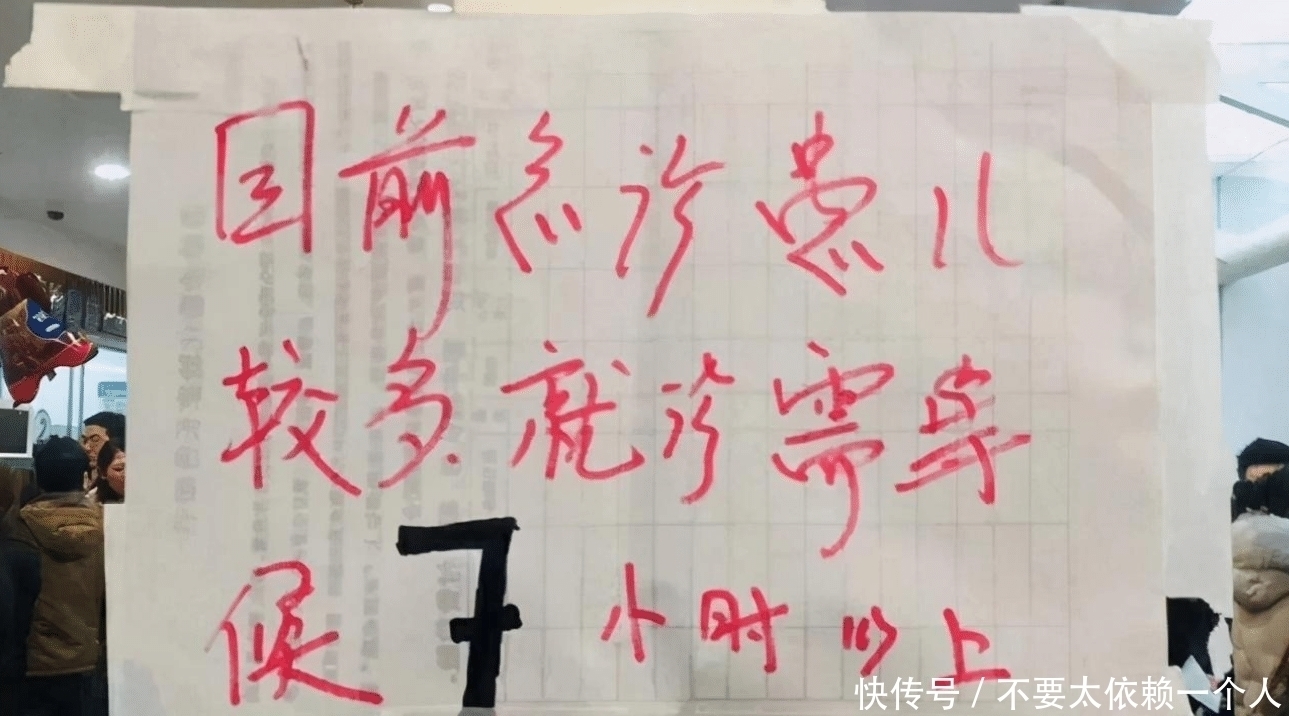 目前急诊患儿
较多就诊需等
候7小时以上
快传号/不要太依赖一个人